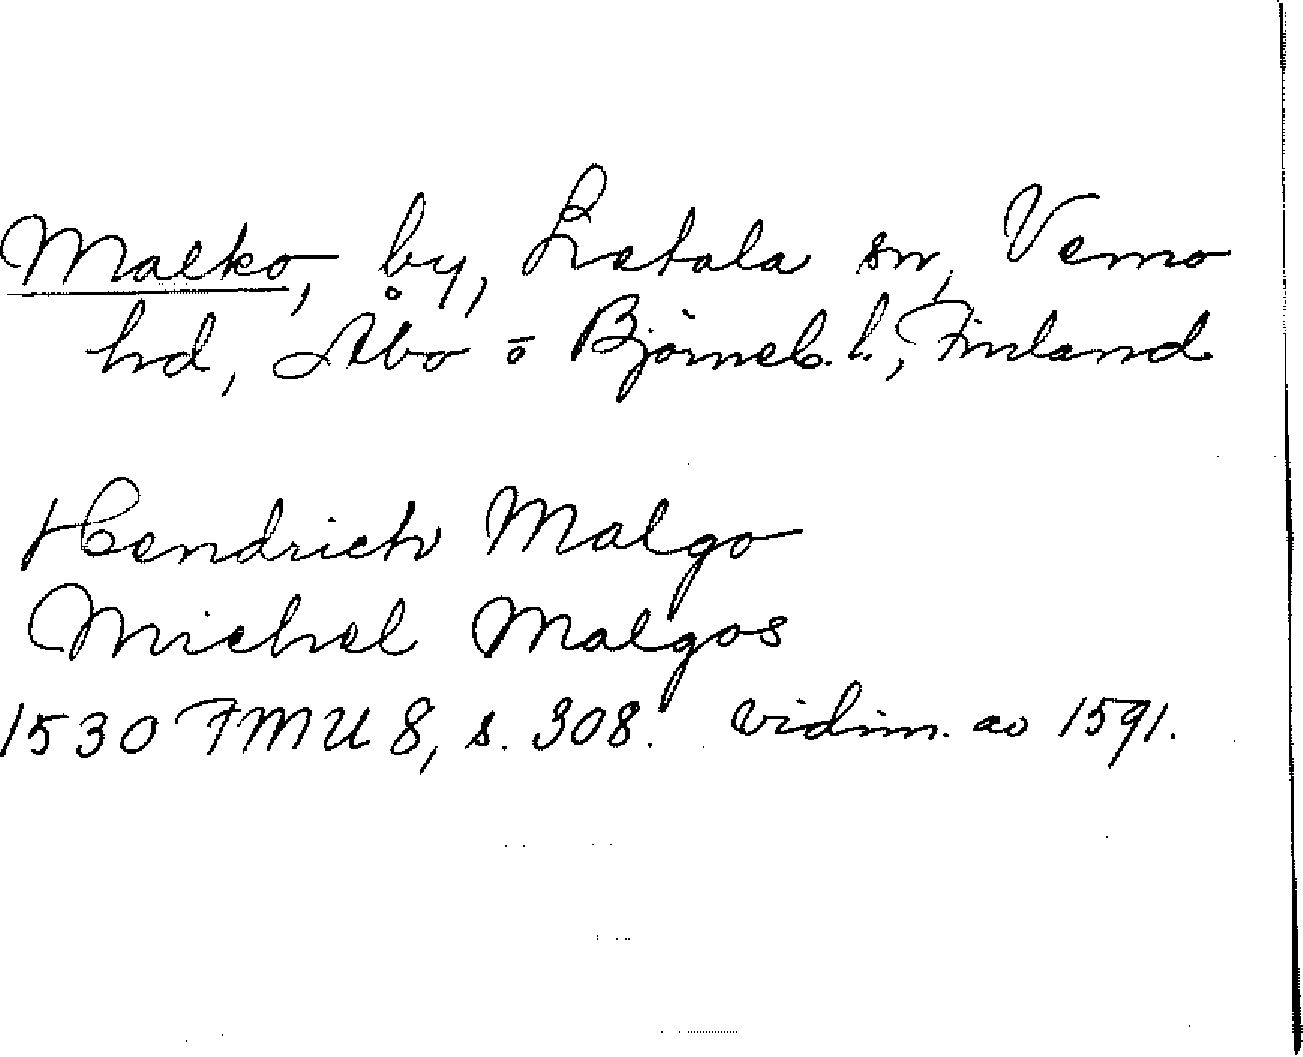 Malko, by, Letala sn, Vemo
hd, Åbo o Björneb. l., Finland
Hendrich Malgo
Michel Malgos
1530 FMU 8, s. 308. vidim. av 1591.